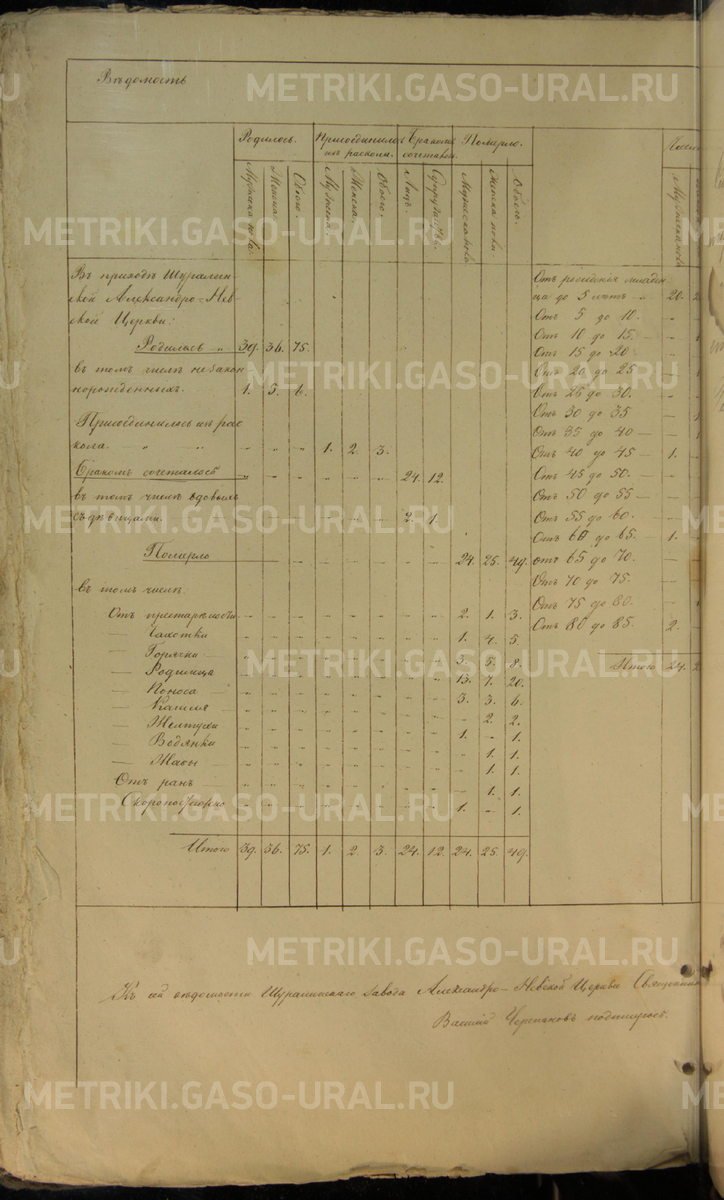 Вѣдомость
Родилось. Присоединилось изъ раскола. Бракомъ сочетавш. Померло.
Мужска пола. Женска. Обоего. Мужска. Женска. Обоего. Лицъ. Супружествъ. Мужеска пола. Женска пола. Обоего.
Въ приходѣ Шуралин-
ской Александро=Нев-
ской Церкви:
Родилось „ 39. 36. 75.
въ томъ числѣ незакон
норожденныхъ. 1. 5. 6.
Присоединилось изъ рас
кола. „ „ 1. 2. 3.
Бракомъ сочеталось 24. 12.
въ томъ числѣ вдовыхъ
съ дѣвицами. 2. 1.
Померло 24. 25. 49.
въ томъ числѣ.
Отъ престарѣлости 2. 1. 3.
— Чахотки 1. 4. 5.
— Горячки 3. 5. 8.
— Родимца 13. 7. 20.
— Поноса 3. 3. 6.
— Кашля „ 2. 2.
— Желтухи 1. „ 1.
— Водянки „ 1. 1.
— Жабы „ 1. 1.
Отъ ранъ „ 1. 1.
Скоропостижно 1. „ 1.
Итого 39. 36. 75. 1. 2. 3. 24. 12. 24. 25. 49.
Мужеска пола
Отъ рождения младен
ца до 5 лѣтъ „ 20. 2
Отъ 5 до 10. „
Отъ 10 до 15. — „ 1
Отъ 15 до 20. „
Отъ 20 до 25 — 1
Отъ 25 до 30.
Отъ 30 до 35 — 1
Отъ 35 до 40 — 1
Отъ 40 до 45 — 1.
Отъ 45 до 50. —
Отъ 50 до 55 —
Отъ 55 до 60. —
Отъ 60 до 65. — 1.
отъ 65 до 70. —
Отъ 70 до 75. —
Отъ 75 до 80. — 1
Отъ 80 до 85. 2.
Итого 24. 2
Къ сей вѣдомости Шуралинскаго завода Александро-Невской Церкви Священник
Василій Черепановъ подписуюсь.
METRIKI.GASO-URAL.RU